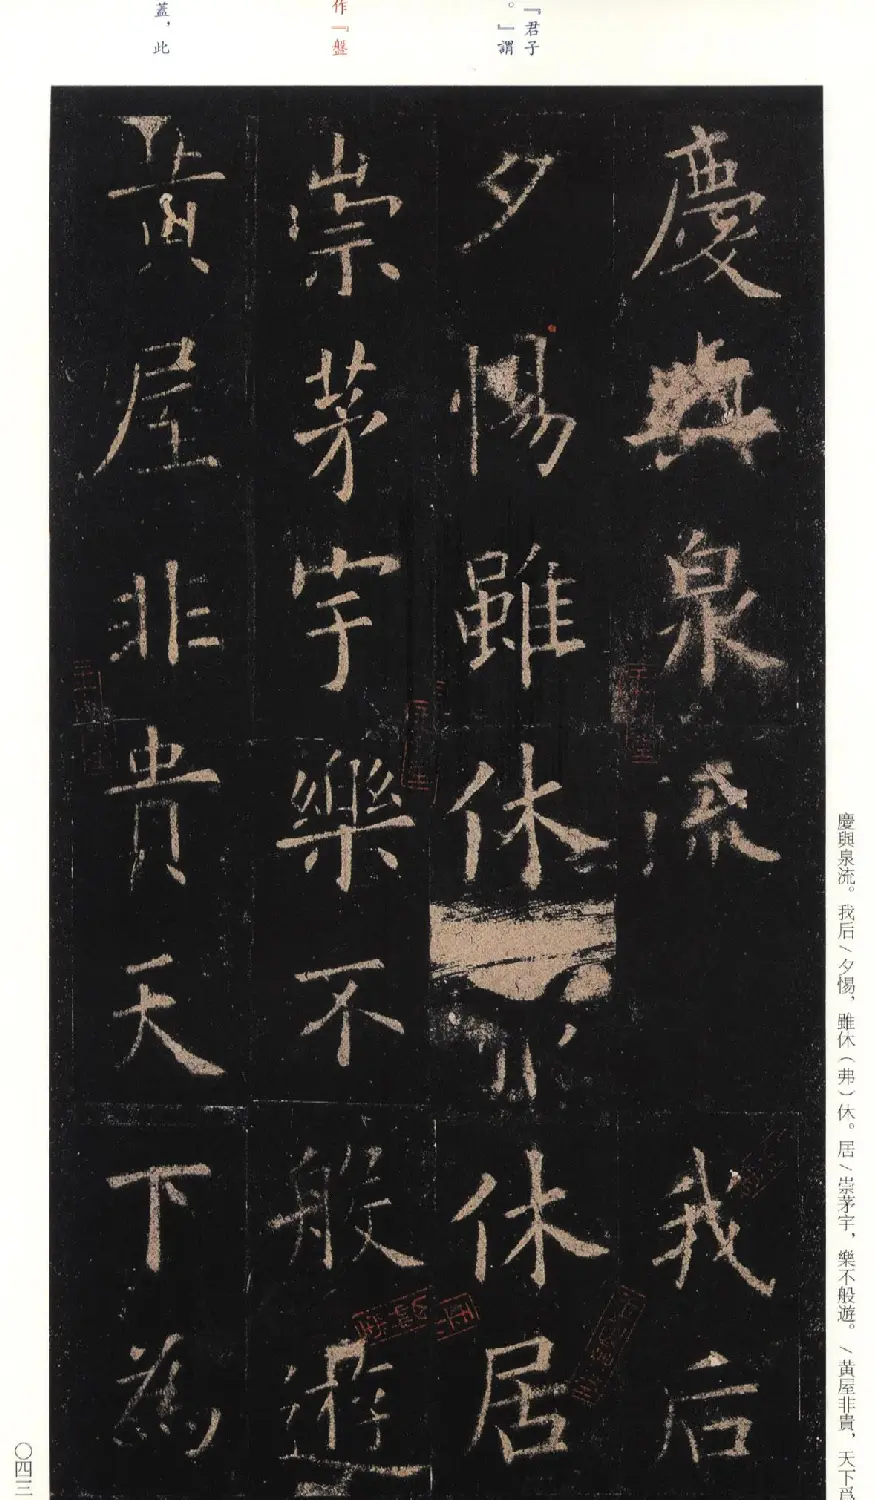 『君子
。』謂
作『盤
蓋，此
慶與泉流我后
夕惕雖休休居
崇茅宇樂不般遊
黃屋非貴天下為
慶與泉流。我后／夕惕，雖休（弗）休。居／崇茅宇，樂不般遊。／黃屋非貴，天下爲
〇四三